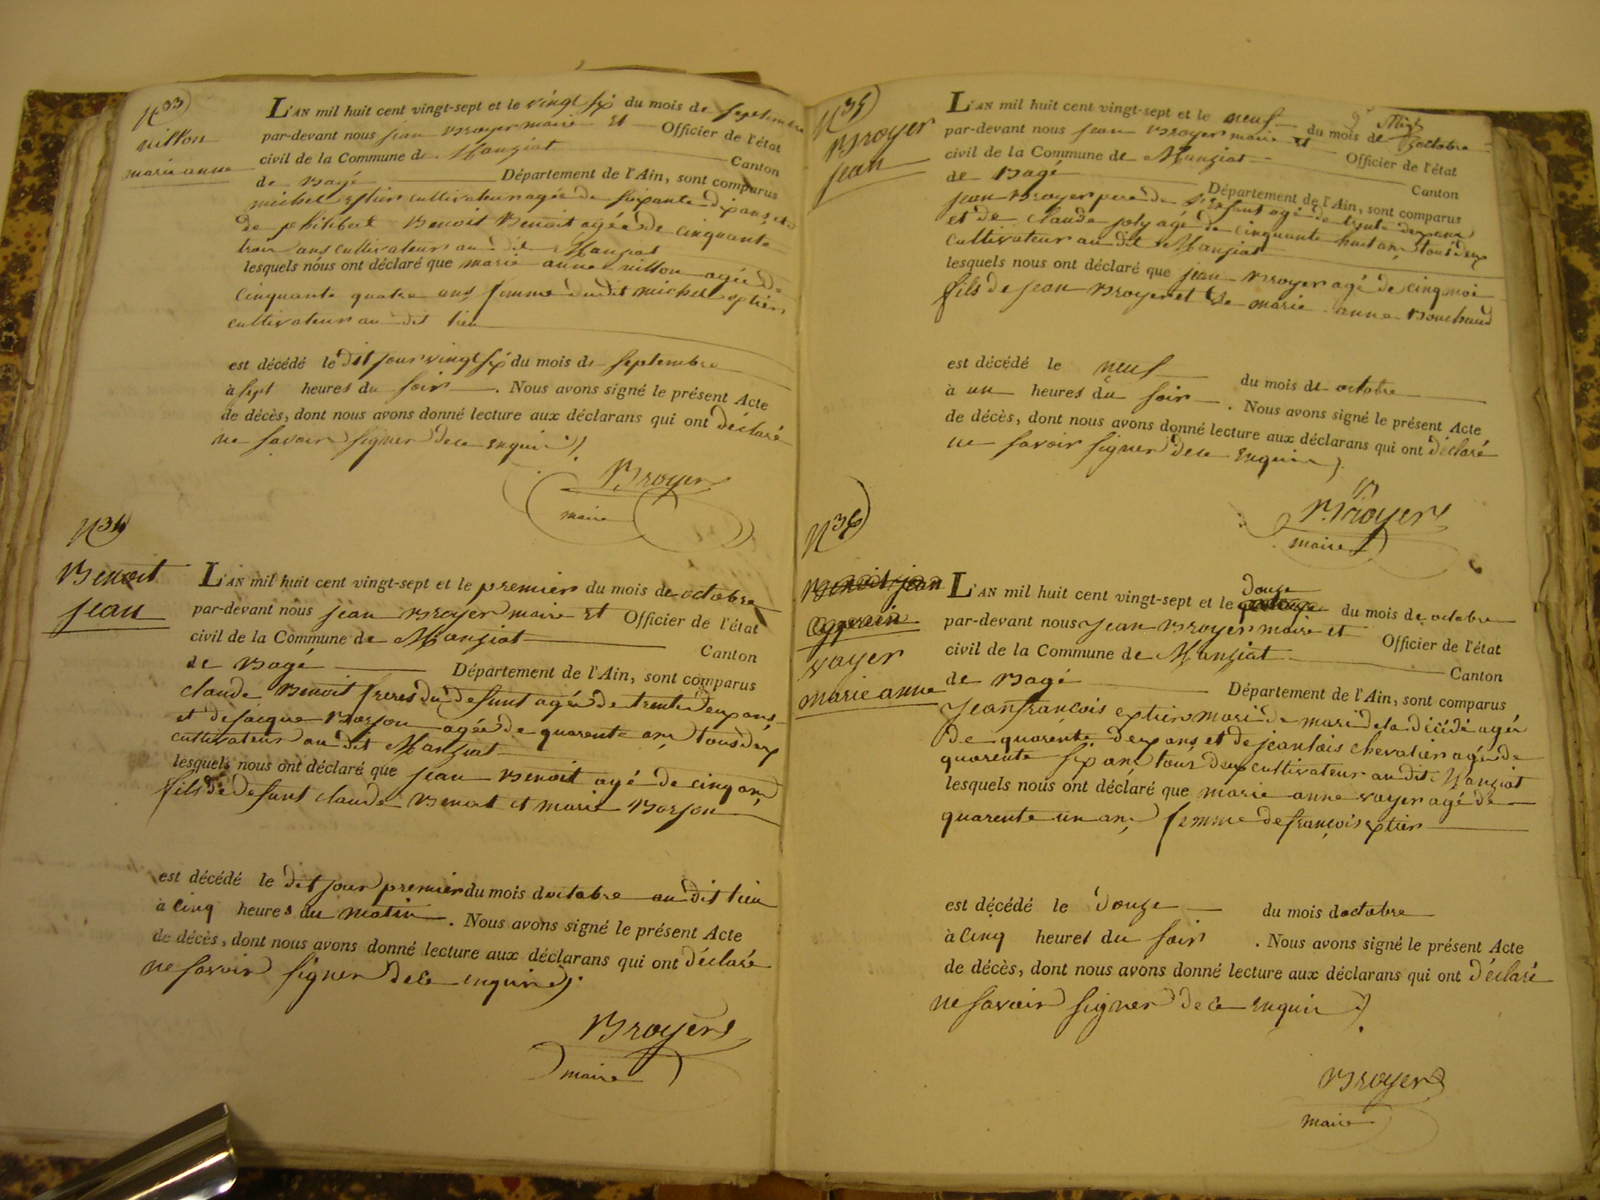 N 33
nillon
marie anne
L'AN mil huit cent vingt-sept et le vingt six du mois de septembre
par-devant nous jean Broyer maire et Officier de l'état
civil de la Commune de Manziat Canton
de Bagé Département de l'Ain, sont comparus
michel extier cultivateur agée de soixante dix ans et
de philibert Benoit Benoit agée de cinquante
trois ans cultivateur au dit Manziat
lesquels nous ont déclaré que marie anne nillon agée de
cinquante quatre ans femme dudit michel extier
cultivateur au dit lieu
est décédé le dit jour vingt six du mois de septembre
à sept heures du soir. Nous avons signé le présent Acte
de décès, dont nous avons donné lecture aux déclarans qui ont déclaré
ne savoir signer de ce enquir
Broyer
maire
N 34
Benoit
jean
L'AN mil huit cent vingt-sept et le premier du mois de octobre
par-devant nous jean Broyer maire et Officier de l'état
civil de la Commune de Manziat Canton
de Bagé Département de l'Ain, sont comparus
claude Benoit freres du defunt agée de trente deux ans
et de jacque Borjon agée de quarente ans tous deux
cultivateur au dit Manziat
lesquels nous ont déclaré que jean Benoit agé de cinq ans
fils de defunt claude Benoit et marie Borjon
est décédé le dit jour premier du mois doctobre au dit lieu
à cinq heures du matin. Nous avons signé le présent Acte
de décès, dont nous avons donné lecture aux déclarans qui ont déclaré
ne savoir signer de ce enquir
Broyer
maire
N 35
Broyer
jean
L'AN mil huit cent vingt-sept et le neuf du mois de octobre
par-devant nous jean Broyer maire et Officier de l'état
civil de la Commune de Manziat Canton
de Bagé Département de l'Ain, sont comparus
jean Broyer pere de defunt agé de trente deux ans
et de claude joly agé de cinquante huit ans tous deux
cultivateur au dit Manziat
lesquels nous ont déclaré que jean Broyer agé de cinq moi
fils de jean Broyer et de marie anne Bouchaud
est décédé le neuf du mois de octobre
à un heures du soir. Nous avons signé le présent Acte
de décès, dont nous avons donné lecture aux déclarans qui ont déclaré
ne savoir signer de ce enquir
Broyer
maire
N 36
Benoit jean
voyer
marie anne
L'AN mil huit cent vingt-sept et le douze du mois de octobre
par-devant nous jean Broyer maire et Officier de l'état
civil de la Commune de Manziat Canton
de Bagé Département de l'Ain, sont comparus
jean francois extier mari de mari de la décédé agée
de quarente deux ans et de jean lois chevalier agée de
quarente six ans tous deux cultivateur au dit Manziat
lesquels nous ont déclaré que marie anne voyer agé de
quarente un ans femme de françois extier
est décédé le douze du mois doctobre
à cinq heures du soir. Nous avons signé le présent Acte
de décès, dont nous avons donné lecture aux déclarans qui ont déclaré
ne savoir signer de ce enquir
Broyer
maire